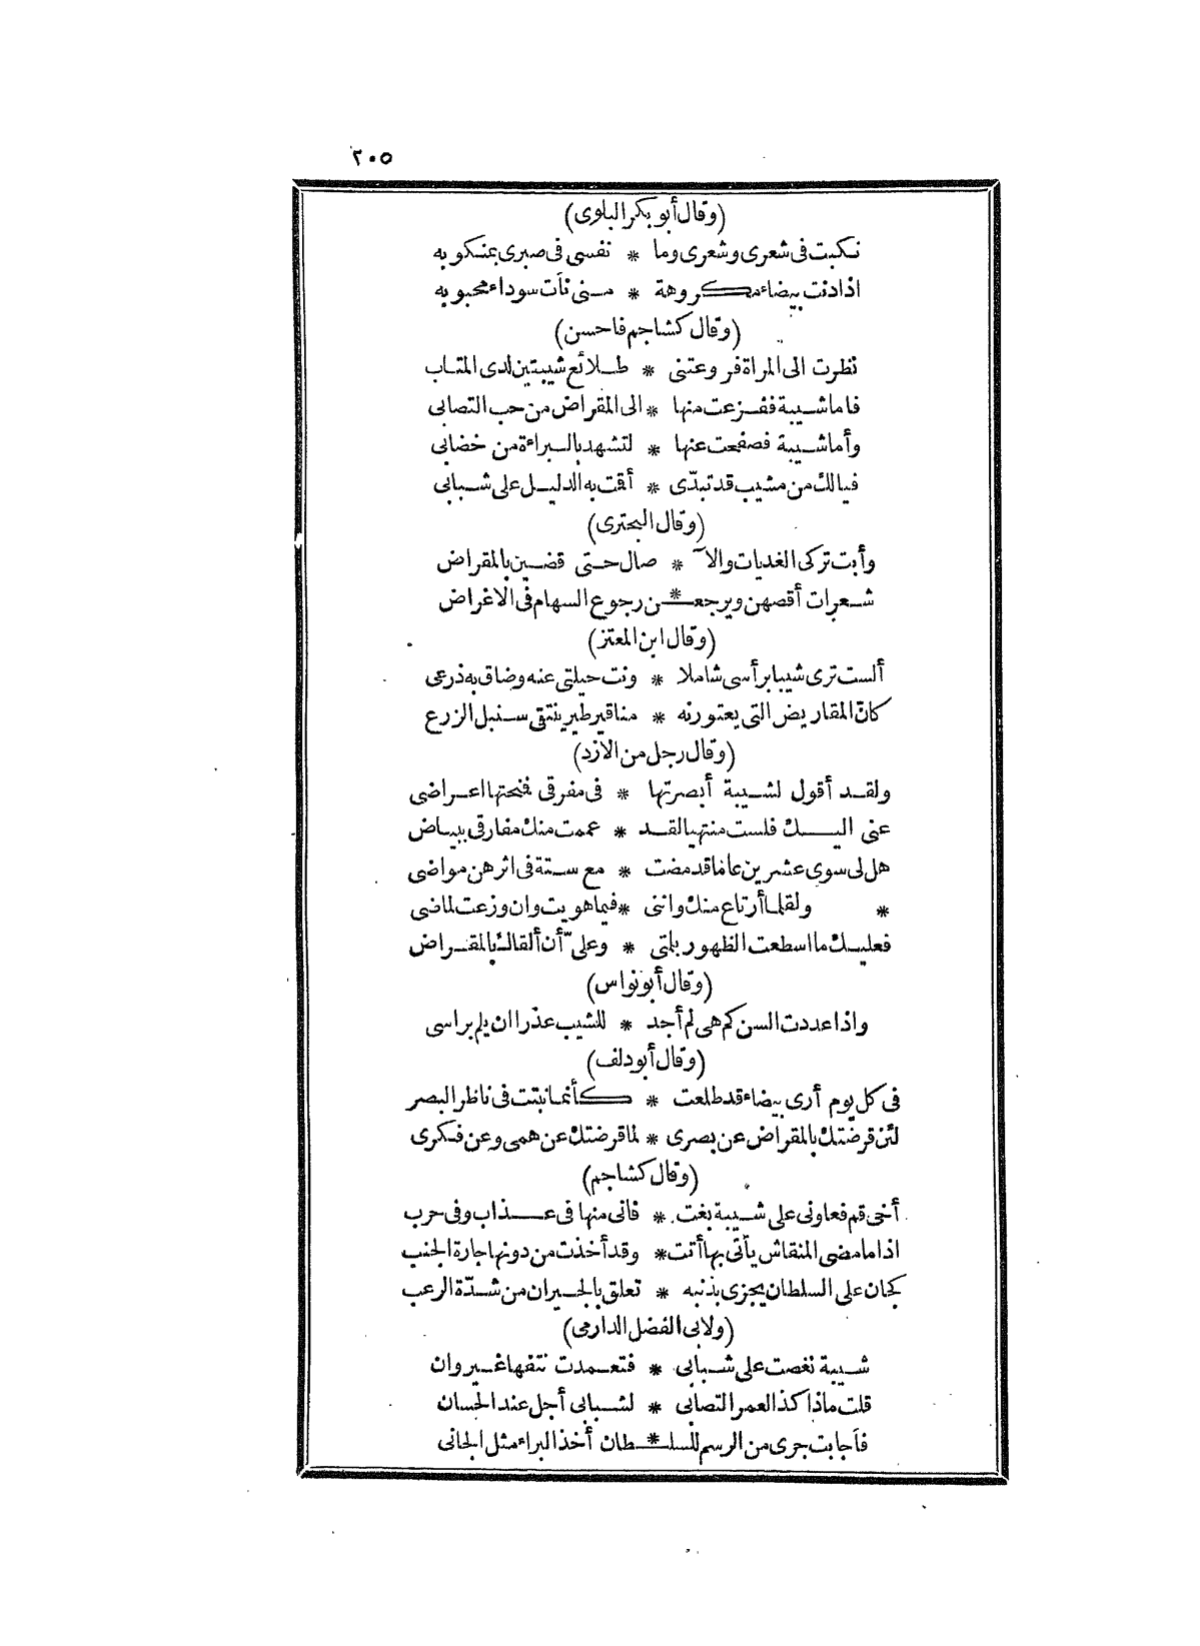 ٢٠٥
(وقال أبو بكر البلوى)
نكبت فى شعرى وشعرى وما * نفسى فى صبرى بمنكوبه
اذا دنت بيضاء مكروهة * منى نأت سوداء محبوبه
(وقال كشاجم فاحسن)
نظرت الى المراة فروعتنى * طلائع شيبتين لدى المتاب
فاما شيبة ففزعت منها * الى المقراض من حب التصابى
وأما شيبة فصفحت عنها * لتشهد بالبراءة من خضابى
فيالك من مشيب قد تبدّى * أقت به الدليل على شبابى
(وقال البحترى)
وأبت تركى الغديات والآ * صال حتى قضين بالمقراض
شعرات أقصهن ويرجعـ * ـن رجوع السهام فى الاغراض
(وقال ابن المعتز)
ألست ترى شيبا برأسى شاملا * ونت حيلتى عنه وضاق به ذرعى
كانّ المقاريض التى يعتورنه * مناقير طير ينتقى سنبل الزرع
(وقال رجل من الازد)
ولقد أقول لشيبة أبصرتها * فى مفرقى فمنحتها اعراضى
عنى اليك فلست منتهيا لقد * عممت منك مفارقى ببياض
هل لى سوى عشرين عاما قد مضت * مع ستة فى اثرهن مواضى
* ولقلما أرتاع منك واننى * فيما هويت وان وزعت لماضى
فعليك ما اسطعت الظهور بلمتى * وعلىّ أن ألقاك بالمقراض
(وقال أبو نواس)
واذا عددت السن كم هى لم أجد * للشيب عذرا ان يلم براسى
(وقال أبو دلف)
فى كل يوم أرى بيضاء قد طلعت * كأنما نبتت فى ناظر البصر
لئن قرضتك بالمقراض عن بصرى * لما قرضتك عن همى وعن فكرى
(وقال كشاجم)
أخى قم فعاونى على شيبة بغت * فانى منها فى عذاب وفى حرب
اذا ما مضى المنقاش يأتى بها أتت * وقد أخذت من دونها جارة الجنب
كجان على السلطان يجزى بذنبه * تعلق بالجيران من شدّة الرعب
(ولابى الفضل الدارمى)
شيبة نغصت على شبابى * فتعمدت نتفها غير وان
قلت ماذا كذا لعمر التصابى * لشبابى أجل عند الحسان
فأجابت جرى من الرسم للسلـ * ـطان أخذ البراء مثل الجانى